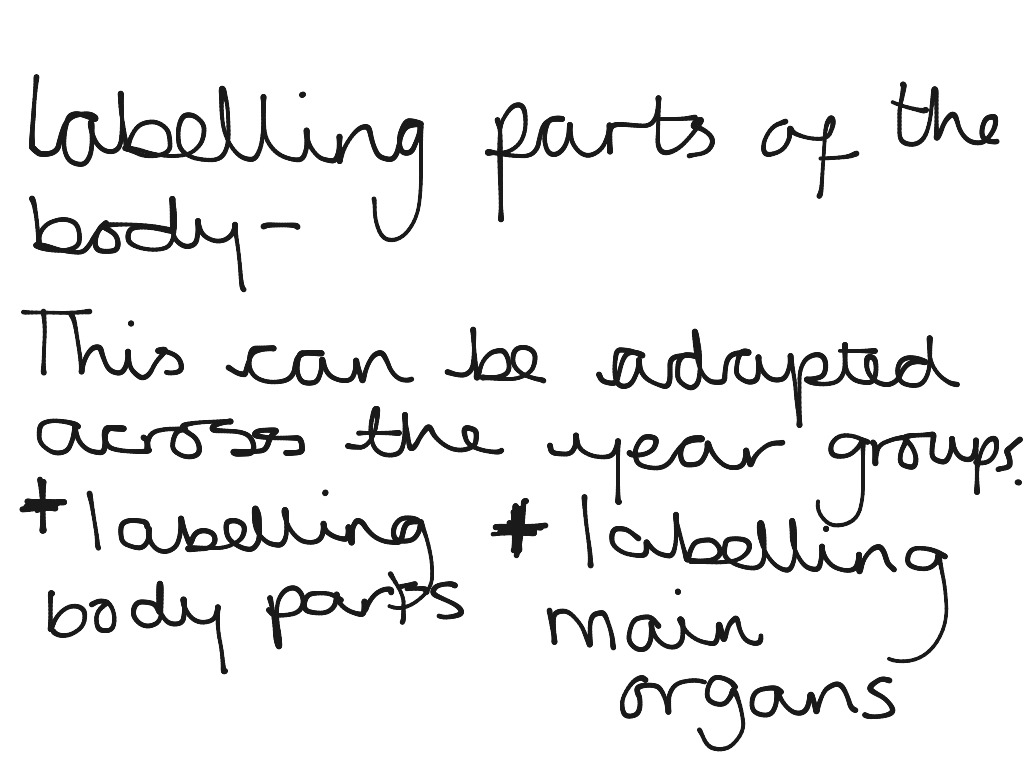 Labelling parts of the
body -
This can be adapted
across the year groups.
+ labelling + labelling
body parts main
organs